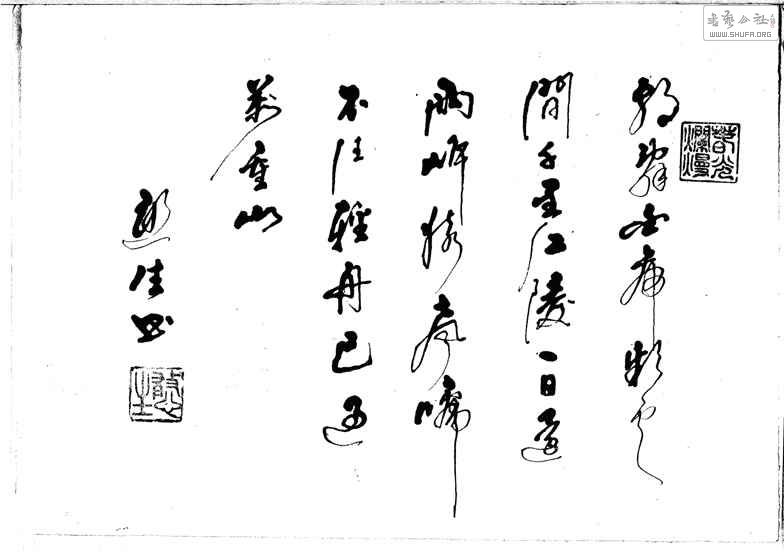 书艺公社
WWW.SHUFA.ORG
春光爛熳
朝辭白帝彩雲
間千里江陵一日還
兩岸猿聲啼
不住輕舟已過
萬重山
佳书